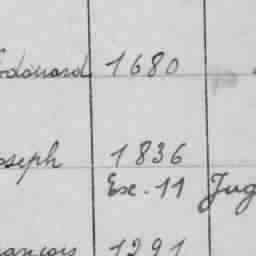 Edouard 1680
Joseph 1836
Ex. 11 Jug
François 1291